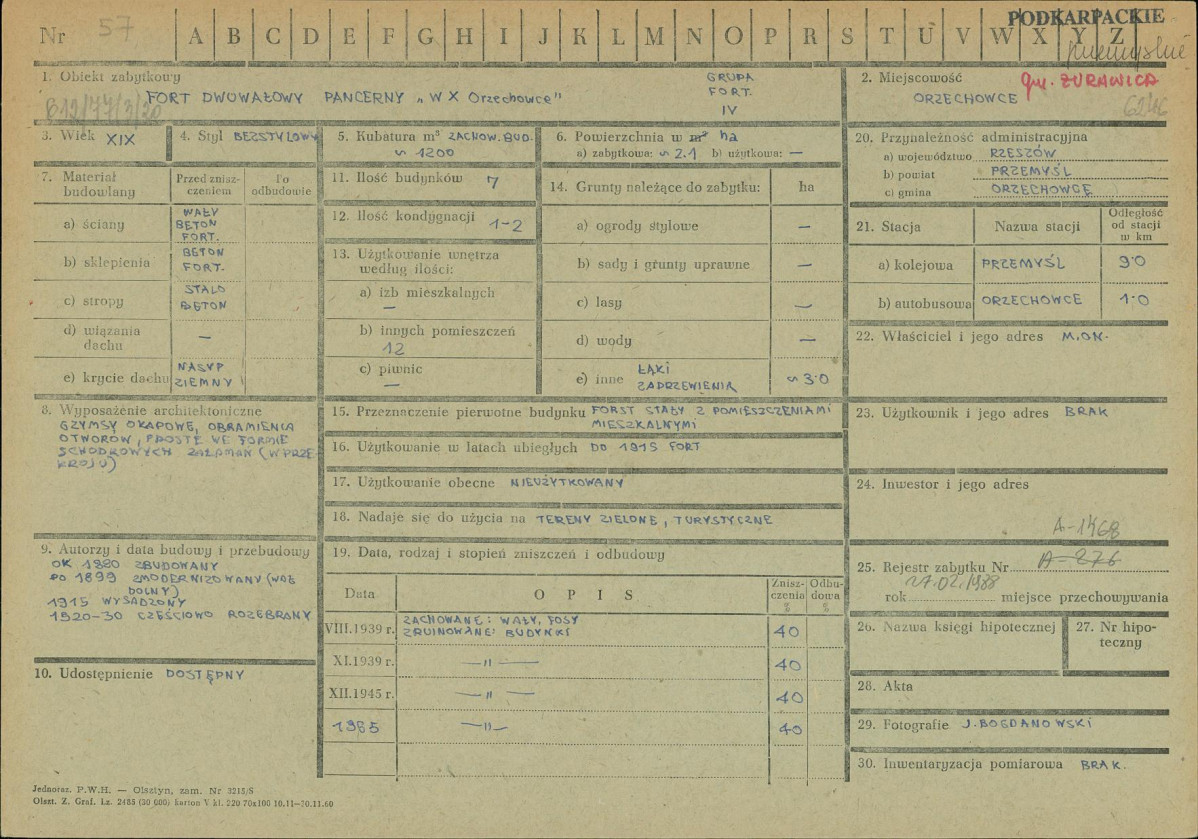 Nr 57 A B C D E F G H I J K L M N O P R S T U V W X Y Z
PODKARPACKIE
przemyskie
1. Obiekt zabytkowy
B12/77/3/20
FORT DWUWAŁOWY PANCERNY „W X Orzechowce"
GRUPA
FORT.
IV
2. Miejscowość
gm. ŻURAWICA
ORZECHOWCE
6246
3. Wiek XIX
4. Styl BEZSTYLOWY
5. Kubatura m³ ZACHOW. BUD.
~ 1200
6. Powierzchnia w m² ha
a) zabytkowa: ~ 2.1 b) użytkowa: —
7. Materiał
budowlany
Przed znisz-
czeniem
Po
odbudowie
a) ściany
WAŁY
BETON
FORT.
b) sklepienia
BETON
FORT.
c) stropy
STALO
BETON
d) wiązania
dachu
—
e) krycie dachu
NASYP
ZIEMNY
8. Wyposażenie architektoniczne
GZYMSY OKAPOWE, OBRAMIENIA
OTWORÓW, PROSTE WE FORMIE
SCHODKOWYCH ZAŁAMAŃ (W PRZE-
KROJU)
9. Autorzy i data budowy i przebudowy
OK 1880 ZBUDOWANY
PO 1899 ZMODERNIZOWANY (WAŁ
DOLNY)
1915 WYSADZONY
1920-30 CZĘŚCIOWO ROZEBRANY
10. Udostępnienie DOSTĘPNY
11. Ilość budynków 7
12. Ilość kondygnacji 1-2
13. Użytkowanie wnętrza
według ilości:
a) izb mieszkalnych
—
b) innych pomieszczeń
12
c) piwnic
—
14. Grunty należące do zabytku: ha
a) ogrody stylowe —
b) sady i grunty uprawne —
c) lasy —
d) wody —
e) inne ŁĄKI
ZADRZEWIENIA ~ 3.0
15. Przeznaczenie pierwotne budynku FORST STAŁY Z POMIESZCZENIAMI
MIESZKALNYMI
16. Użytkowanie w latach ubiegłych DO 1915 FORT
17. Użytkowanie obecne NIEUŻYTKOWANY
18. Nadaje się do użycia na TERENY ZIELONE, TURYSTYCZNE
19. Data, rodzaj i stopień zniszczeń i odbudowy
Data
O P I S
Znisz-
czenia
%
Odbu-
dowa
%
VIII.1939 r. ZACHOWANE: WAŁY, FOSY
ZRUINOWANE: BUDYNKI 40
XI.1939 r. —„— 40
XII.1945 r. —„— 40
1985 —„— 40
20. Przynależność administracyjna
a) województwo RZESZÓW
b) powiat PRZEMYŚL
c) gmina ORZECHOWCE
21. Stacja
Nazwa stacji
Odległość
od stacji
w km
a) kolejowa PRZEMYŚL 9.0
b) autobusowa ORZECHOWCE 1.0
22. Właściciel i jego adres M.ON.
23. Użytkownik i jego adres BRAK
24. Inwestor i jego adres
A-1468
25. Rejestr zabytku Nr A-276
27.02.1988
rok miejsce przechowywania
26. Nazwa księgi hipotecznej
27. Nr hipo-
teczny
28. Akta
29. Fotografie J. BOGDANOWSKI
30. Inwentaryzacja pomiarowa BRAK.
Jednoraz. P.W.H. — Olsztyn, zam. Nr 3215/S
Olszt. Z. Graf. Lz. 2485 (30 000) karton V kl. 220 70x100 10.11—30.11.60